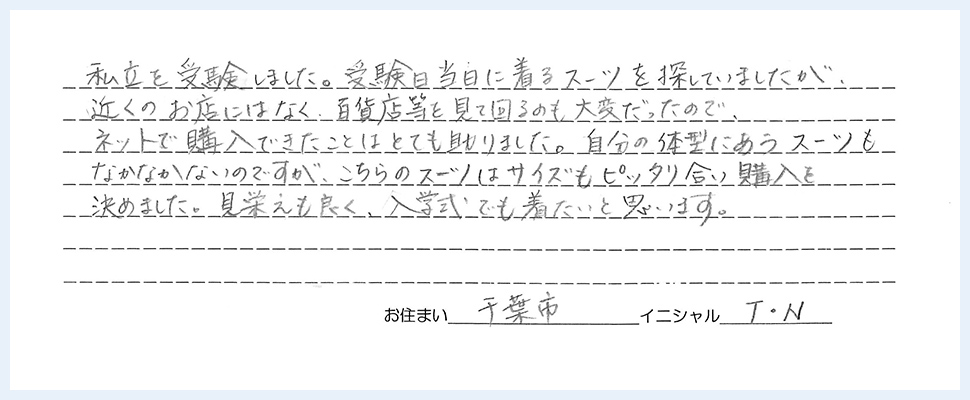 私立を受験しました。受験日当日に着るスーツを探していましたが、
近くのお店にはなく、百貨店等を見て回るのも大変だったので、
ネットで購入できたことはとても助りました。自分の体型にあうスーツも
なかなかないのですが、こちらのスーツはサイズもピッタリ合い購入を
決めました。見栄えも良く、入学式でも着たいと思います。
お住まい 千葉市 イニシャル T・N